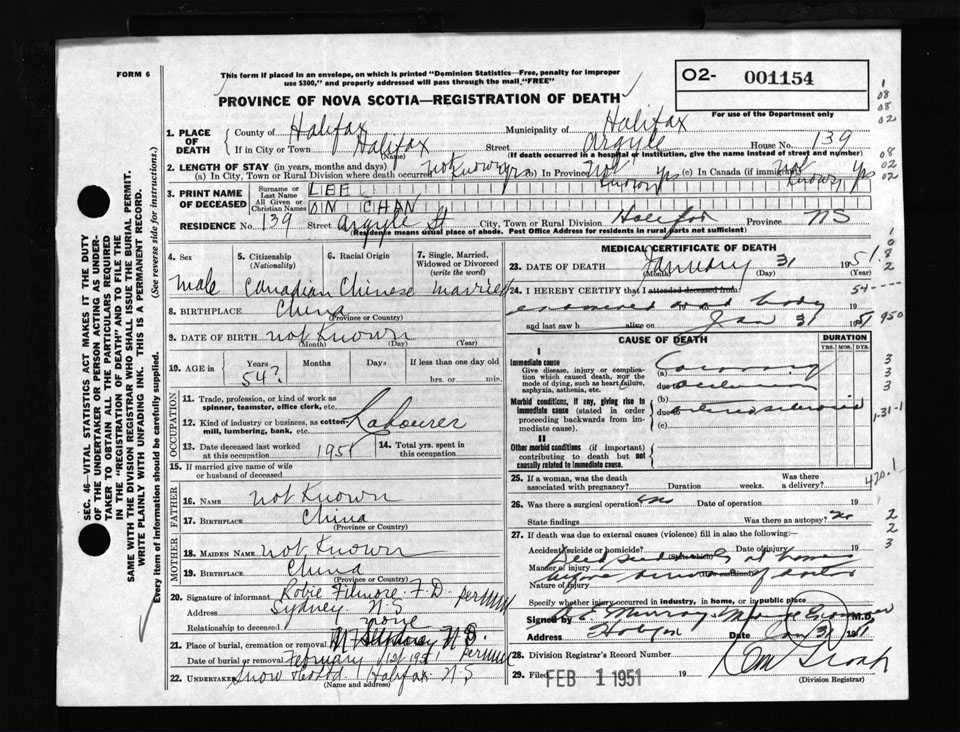 FORM 6
This form if placed in an envelope, on which is printed "Dominion Statistics—Free, penalty for improper
use $300," and properly addressed will pass through the mail "FREE"
PROVINCE OF NOVA SCOTIA—REGISTRATION OF DEATH
O2- 001154
For use of the Department only
1. PLACE OF DEATH
County of Halifax Municipality of Halifax
If in City or Town Halifax Street Argyle House No. 139
(Name) (If death occurred in a hospital or institution, give the name instead of street and number)
2. LENGTH OF STAY (in years, months and days)
(a) In City, Town or Rural Division where death occurred Not Known yrs (b) In Province Not Known yrs (c) In Canada (if immigrant) Not Known yrs
3. PRINT NAME OF DECEASED
Surname or Last Name LEE
All Given or Christian Names ON CHAN
RESIDENCE No. 139 Street Argyle St City, Town or Rural Division Halifax Province NS
(Residence means usual place of abode. Post Office Address for residents in rural parts not sufficient)
4. Sex
Male
5. Citizenship
(Nationality)
Canadian
6. Racial Origin
Chinese
7. Single, Married, Widowed or Divorced
(write the word)
Married
8. BIRTHPLACE China
(Province or Country)
9. DATE OF BIRTH not Known
(Month) (Day) (Year)
10. AGE in Years Months Days If less than one day old
54? hrs. or min.
OCCUPATION
11. Trade, profession, or kind of work as
spinner, teamster, office clerk, etc.
12. Kind of industry or business, as cotton-
mill, lumbering, bank, etc.
Labourer
13. Date deceased last worked
at this occupation 1951
14. Total yrs. spent in
this occupation
15. If married give name of wife
or husband of deceased
FATHER
16. NAME not Known
17. BIRTHPLACE China
(Province or Country)
MOTHER
18. MAIDEN NAME not Known
19. BIRTHPLACE China
(Province or Country)
20. Signature of informant Robie Filmore F.D. per
Address Sydney N.S
Relationship to deceased none
21. Place of burial, cremation or removal Sydney N.S.
Date of burial or removal February 1951 per
22. Undertaker Snow Halifax N S
(Name and address)
MEDICAL CERTIFICATE OF DEATH
23. DATE OF DEATH January 31 1951.
(Month) (Day) (Year)
24. I HEREBY CERTIFY that I attended deceased from:
examined dead body 19
and last saw h alive on Jan 31 1951
CAUSE OF DEATH
DURATION
YRS. MOS. DYS.
I
Immediate cause
Give disease, injury or complica-
tion which caused death, not the
mode of dying, such as heart failure,
asphyxia, asthenia, etc.
(a) Coronary
due to
Morbid conditions, if any, giving rise to
immediate cause (stated in order
proceeding backwards from im-
mediate cause).
(b)
due to arteriosclerosis
(c)
II
Other morbid conditions (if important)
contributing to death but not
causally related to immediate cause.
25. If a woman, was the death
associated with pregnancy? Duration weeks.
Was there
a delivery?
26. Was there a surgical operation? no Date of operation 19
State findings Was there an autopsy? no
27. If death was due to external causes (violence) fill in also the following:—
Accident, suicide or homicide? Date of injury 19
(State which)
Manner of injury
Nature of injury before of doctor
Specify whether injury occurred in industry, in home, or in public place
Signed by Murray M.D.
Address Halifax Date Jan 31 1951
28. Division Registrar's Record Number
29. Filed FEB 1 1951 19
(Division Registrar)
SEC. 46—VITAL STATISTICS ACT MAKES IT THE DUTY
OF THE UNDERTAKER OR PERSON ACTING AS UNDER-
TAKER TO OBTAIN ALL THE PARTICULARS REQUIRED
IN THE "REGISTRATION OF DEATH" AND TO FILE THE
SAME WITH THE DIVISION REGISTRAR WHO SHALL ISSUE THE BURIAL PERMIT.
WRITE PLAINLY WITH UNFADING INK. THIS IS A PERMANENT RECORD.
Every item of information should be carefully supplied. (See reverse side for instructions.)
1
08
08
02
08
02
02
1
0
8
2
54
950
3
3
3
1-31-1
420.1
2
2
3